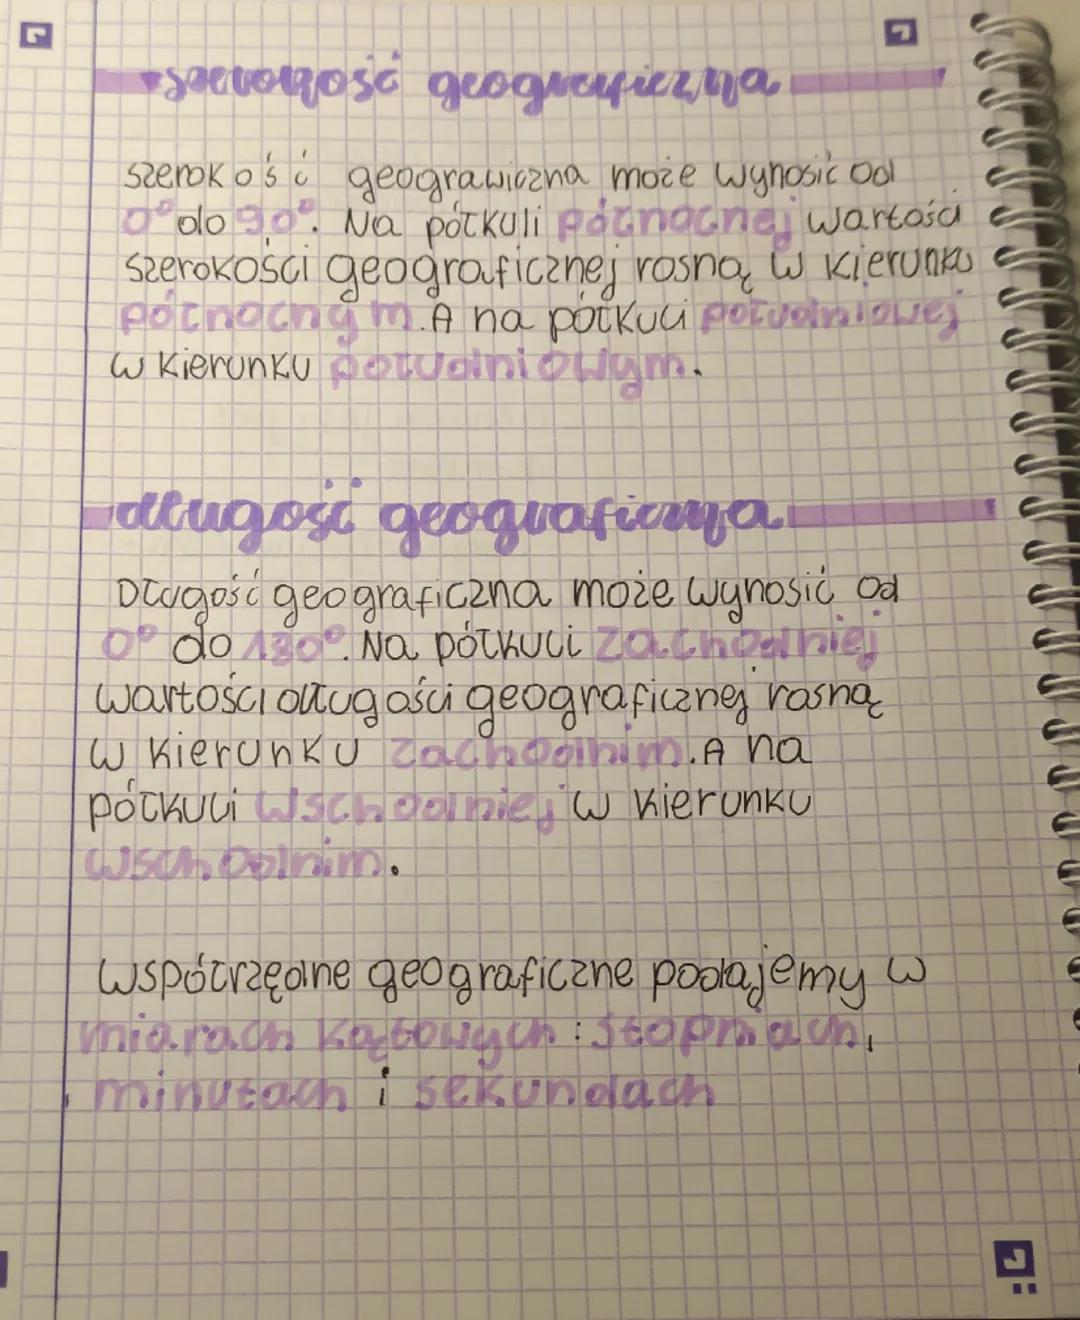 szerokość geograficzna
szerokość geograwiczna może wynosić od
0° do 90°. Na półkuli północnej wartości
szerokości geograficznej rosną w kierunku
północnym. A na półkuli południowej
w kierunku południowym.
długość geograficzna
Długość geograficzna może wynosić od
0° do 180°. Na półkuli zachodniej
wartości długości geograficznej rosną
w kierunku zachodnim. A na
półkuli wschodniej w kierunku
wschodnim.
Współrzędne geograficzne podajemy w
miarach kątowych: stopniach,
minutach i sekundach